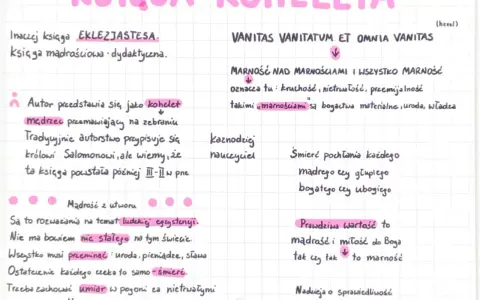 KSIĘGA KOHELETA
Inaczej księga EKLEZJASTESA.
Księga mądrościowo-dydaktyczna.
Autor przedstawia się jako kohelet
mędrzec przemawiający na zebraniu
Tradycyjnie autorstwo przypisuje się
królowi Salomonowi, ale wiemy, że
ta księga powstała później III-II w pne
kaznodziej
nauczyciel
Mądrość z utworu
Są to rozważania na temat ludzkiej egzystencji.
Nie ma bowiem nic stałego na tym świecie.
Wszystko musi przeminąć: uroda, pieniądze, sława
Ostatecznie każdego czeka to samo - śmierć.
Trzeba zachować umiar w pogoni za nietrwałymi
VANITAS VANITATUM ET OMNIA VANITAS
MARNOŚĆ NAD MARNOŚCIAMI I WSZYSTKO MARNOŚĆ
oznacza tu: kruchość, nietrwałość, przemijalność
takimi "marnościami" są bogactwa materialne, uroda, władza
Śmierć pochłania każdego
mądrego czy głupiego
bogatego czy ubogiego
Prawdziwa wartość to
mądrość i miłość do Boga
tak czy tak to marność
Nadzieja o sprawiedliwość